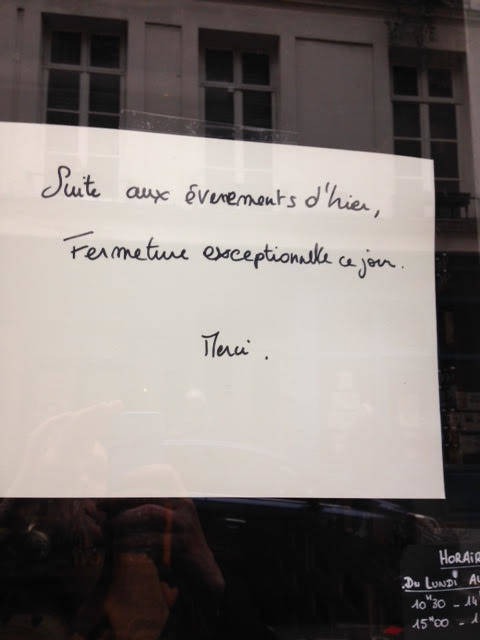 Suite aux évenements d'hier,
Fermeture exceptionnelle ce jour.
Merci.
HORAIR
DU LUNDI AU
10H30 - 14
15H00 - 1